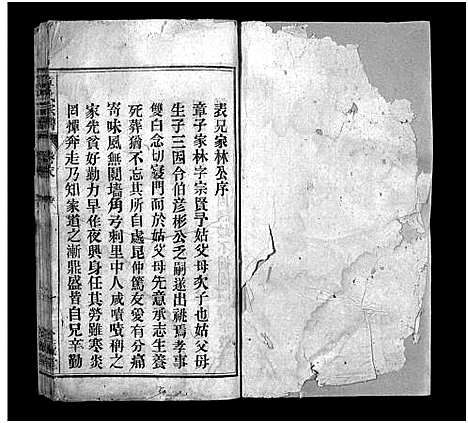 表兄家林公序
章子家林字宗賢予姑父母次子也姑父母
生子三因令伯彥彬公乏嗣遂出祧焉孝事
雙白念切寢門而於姑父母先意承志生養
死葬猶不忘其所自處昆仲篤友愛有分痛
寄味風無鬩墻角弓刺里中人咸嘖嘖稱之
家先貧好勤力早作夜興身任其勞雖寒炎
罔憚奔走乃知家道之漸鼎盛皆自兄辛勤